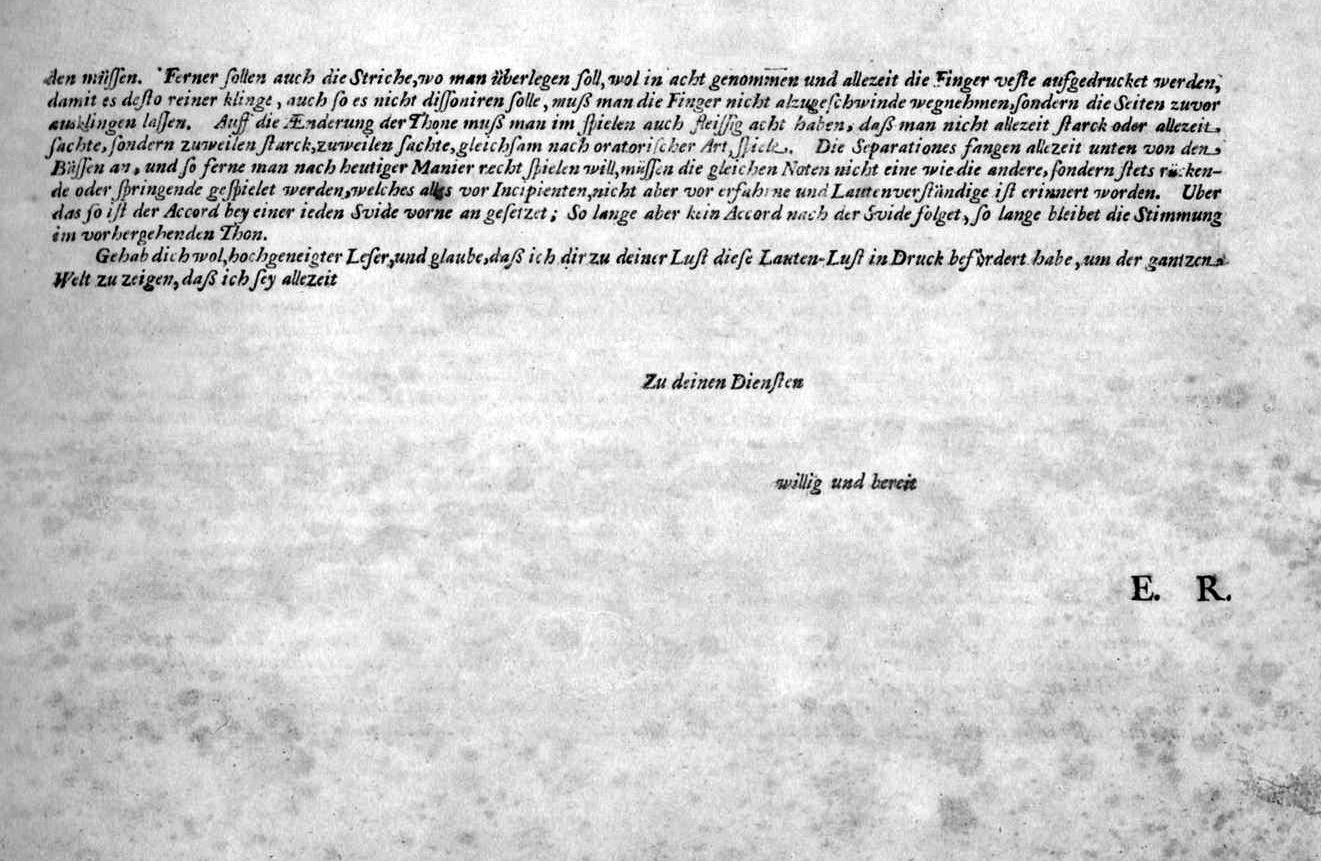 den müſſen. Ferner ſollen auch die Striche, wo man überlegen ſoll, wol in acht genommen und allezeit die Finger veſte aufgedrucket werden,
damit es deſto reiner klinge, auch ſo es nicht diſſoniren ſolle, muß man die Finger nicht alzugeſchwinde wegnehmen, ſondern die Seiten zuvor
ausklingen laſſen. Auff die Ænderung der Thone muß man im ſpielen auch fleiſſig acht haben, daß man nicht allezeit ſtarck oder allezeit
ſachte, ſondern zuweilen ſtarck, zuweilen ſachte, gleichſam nach oratoriſcher Art, ſpiele. Die Separationes fangen allezeit unten von den
Büſſen an, und ſo ferne man nach heutiger Manier recht ſpielen will, müſſen die gleichen Noten nicht eine wie die andere, ſondern ſtets rücken-
de oder ſpringende geſpielet werden, welches alles vor Incipienten, nicht aber vor erfahrne und Lautenverſtändige iſt erinnert worden. Uber
das ſo iſt der Accord bey einer ieden Svide vorne an geſetzet; So lange aber kein Accord nach der Svide folget, ſo lange bleibet die Stimmung
im vorhergehenden Thon.
Gehab dich wol, hochgeneigter Leſer, und glaube, daß ich dir zu deiner Luſt dieſe Lauten-Luſt in Druck befördert habe, um der gantzen
Welt zu zeigen, daß ich ſey allezeit
Zu deinen Dienſten
willig und bereit
E. R.